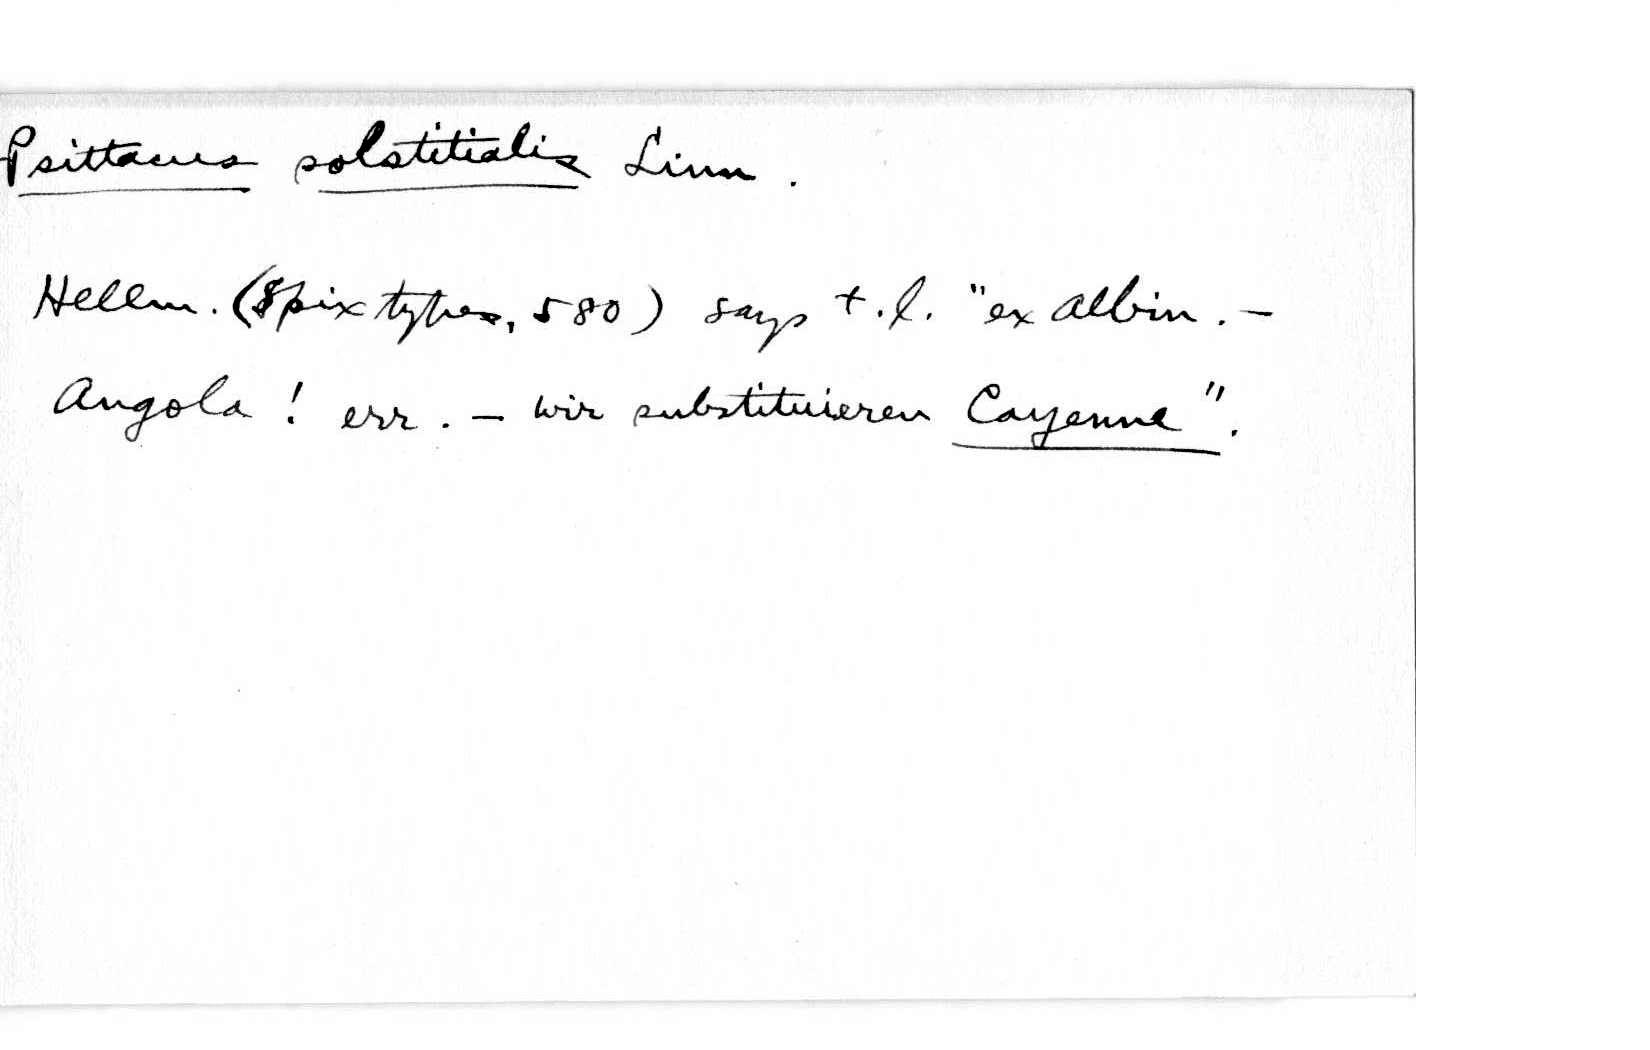 Psittacus solstitialis Linn.
Hellm. (Spix types, 580) says t.l. "ex Albin. -
Angola! err. - wir substituieren Cayenne".